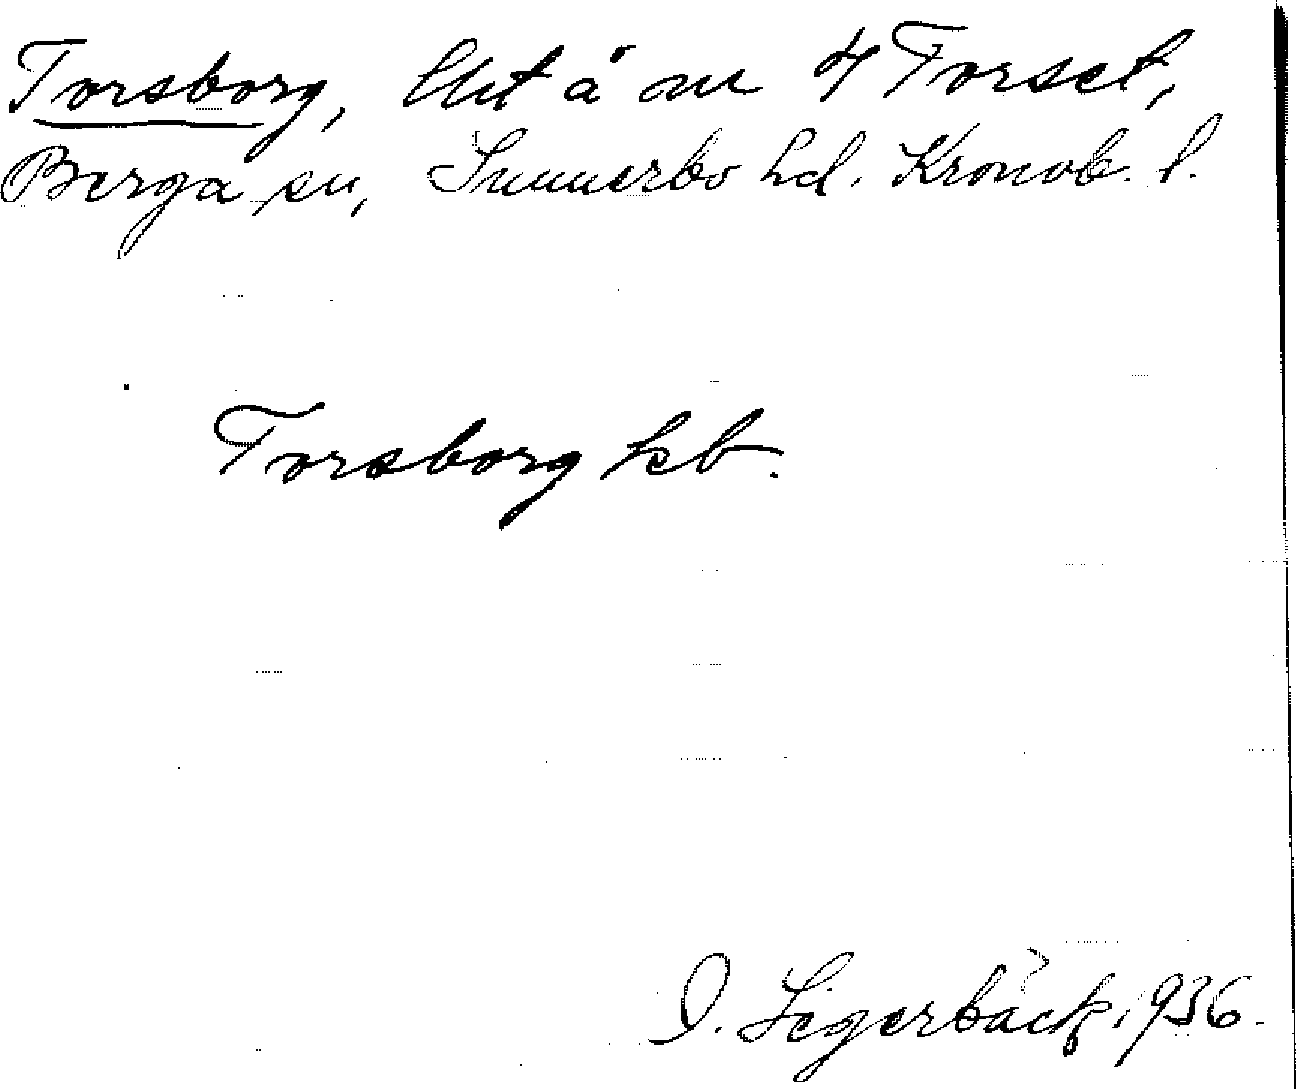 Torsborg, lht å nr 4 Torset,
Berga sn, Sunnerbo hd. Kronob. l.
Torsborg kb.
O. Segerbäck, 1936.